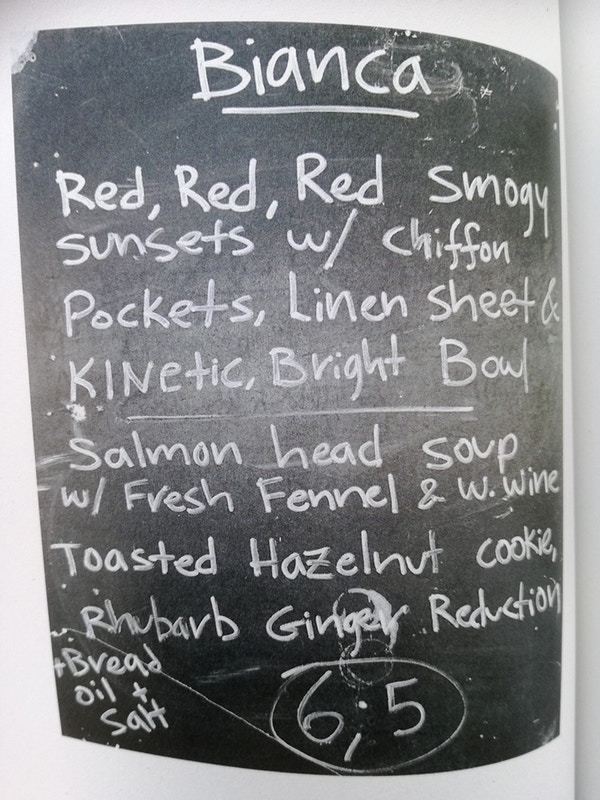 Bianca
Red, Red, Red Smogy
sunsets w/ chiffon
Pockets, Linen sheet &
KINetic, Bright Bowl
Salmon head soup
w/ Fresh Fennel & W. Wine
Toasted Hazelnut cookie,
Rhubarb Ginger Reduction
+Bread
oil +
Salt
6;5